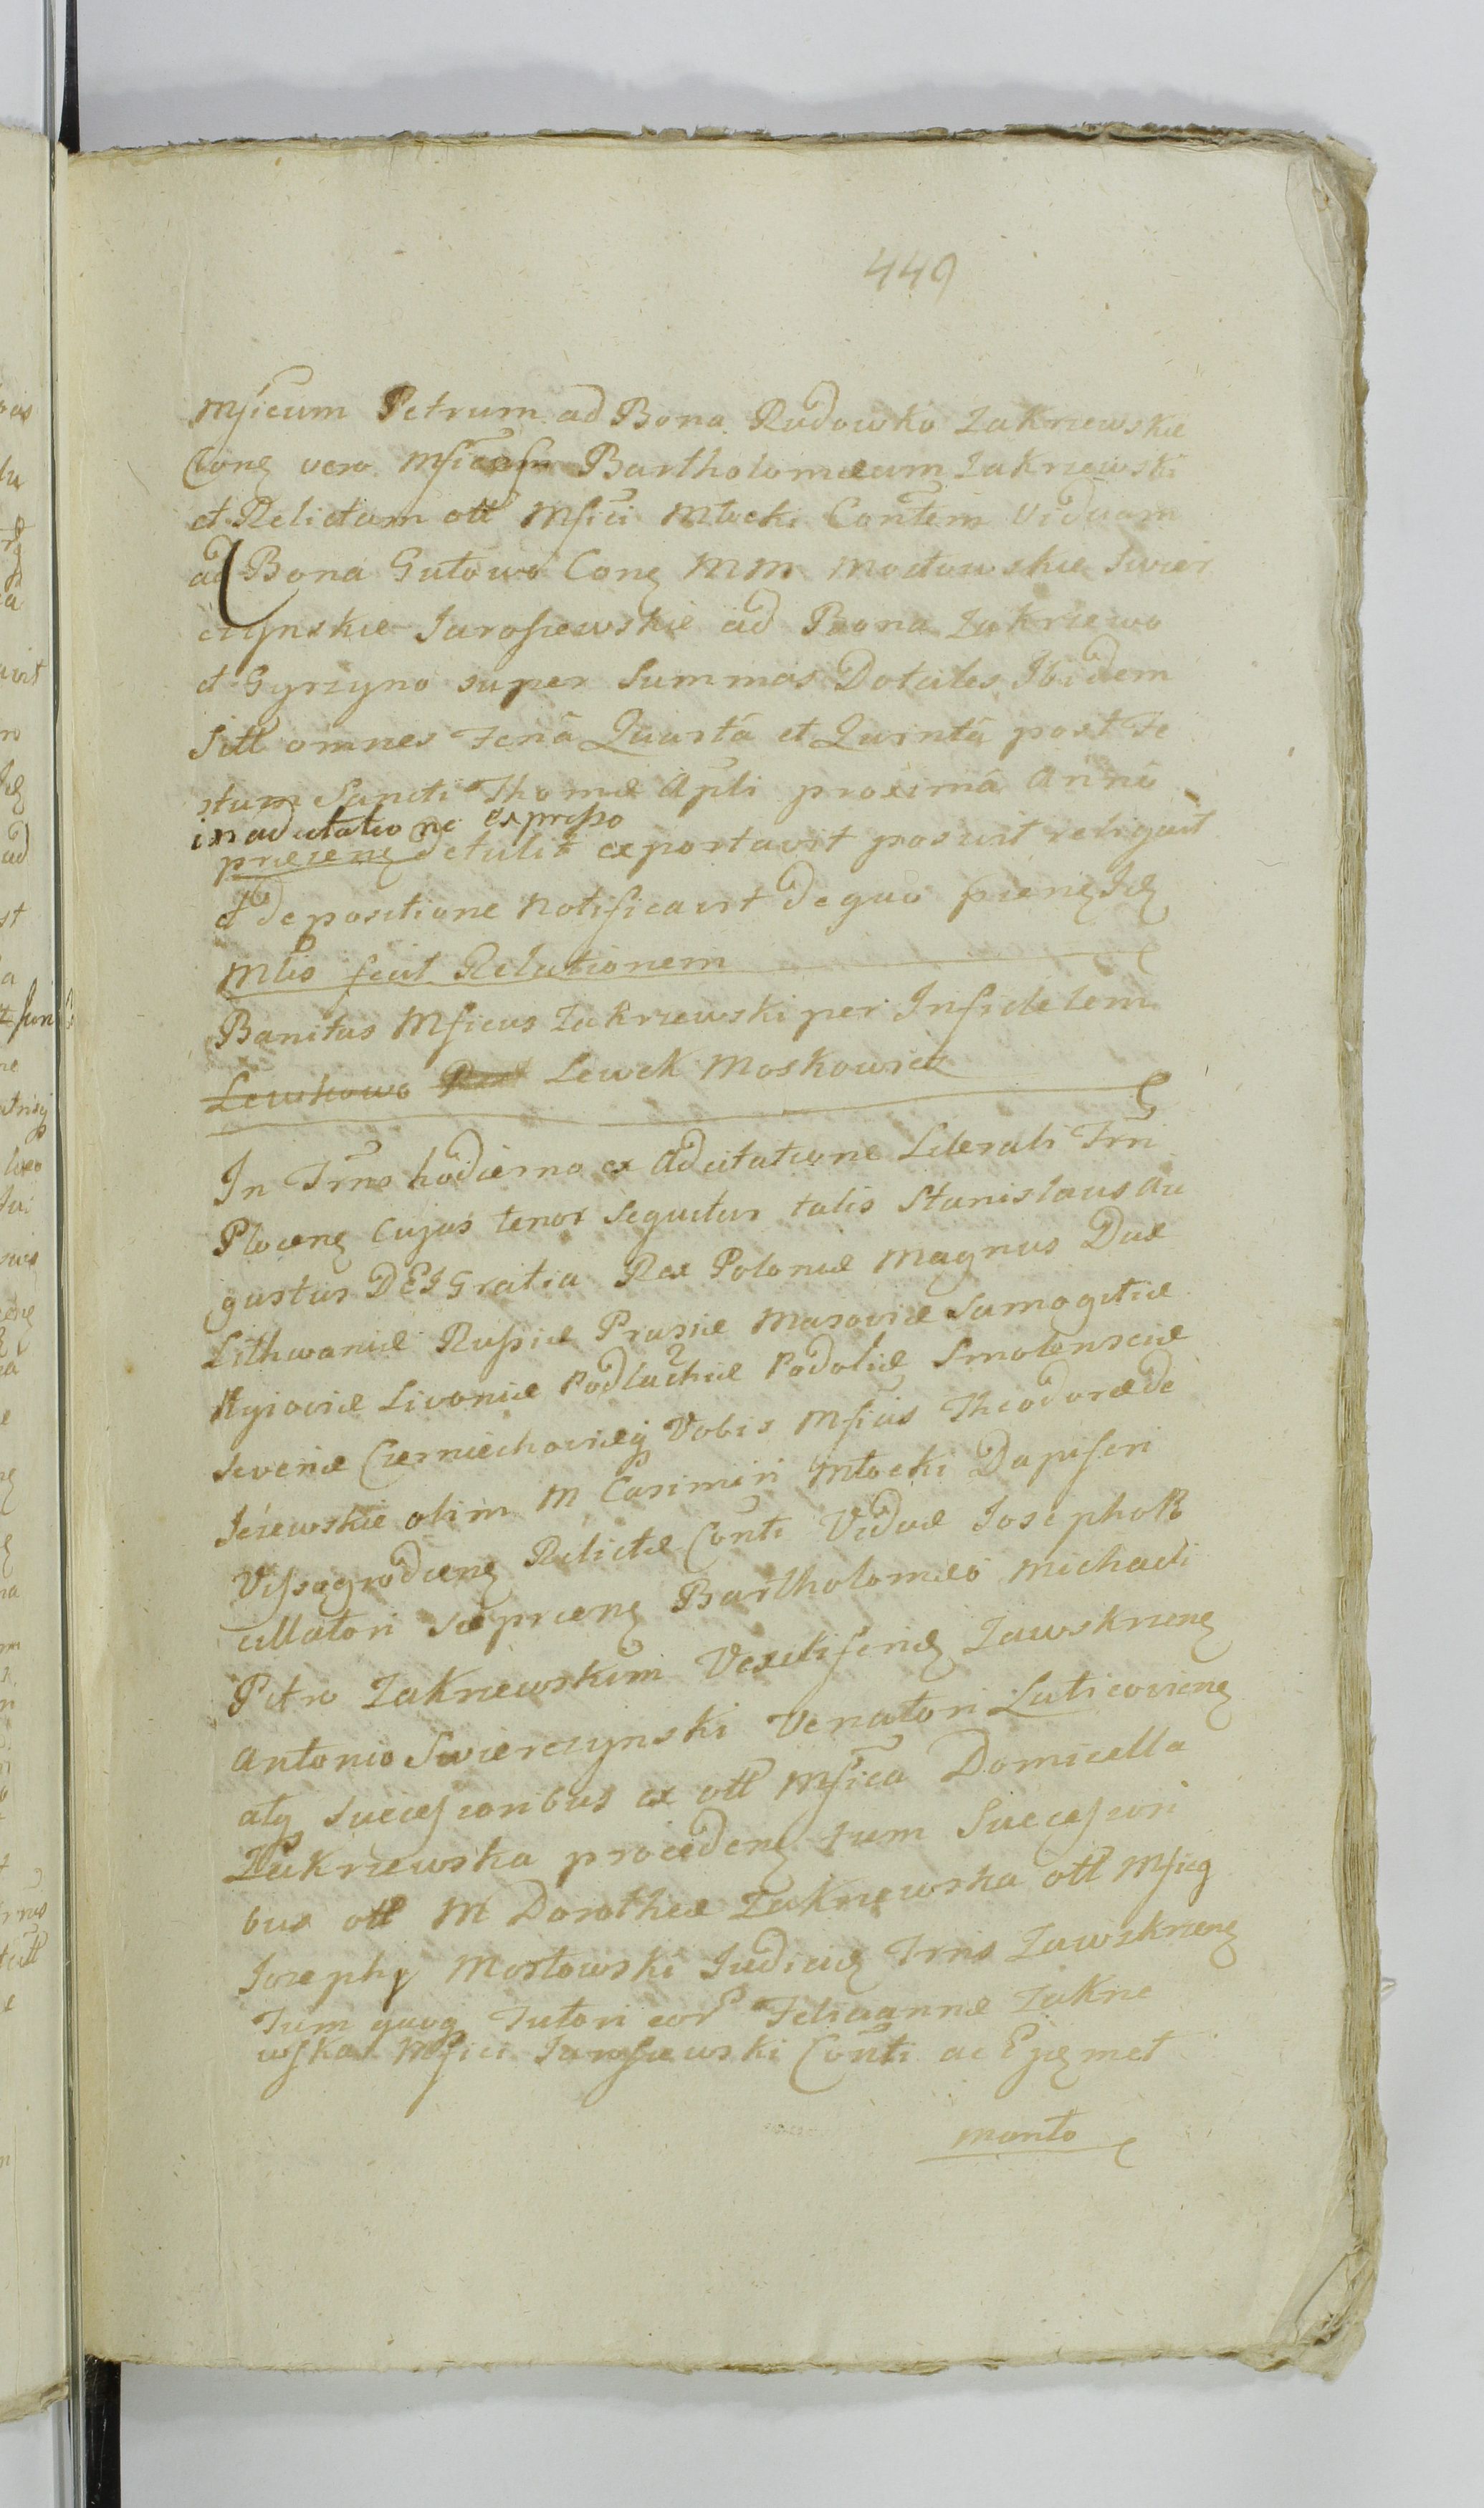 449
Mficum Petrum ad Bona Rudowko Zakrzewskie
Cone vero Mficum Bartholomæum Zakrzewski
et Relictam oll Mfici Młocki Contem Viduam
ad Bona Gutowo Cone MM Mostowskie Swier
czynskie Jarosiewskie ad Bona Zakrzewo
et Gyrzyno super Summas Dotales Ibidem
Sitt omnes Feria Quarta et Quinta post Fe
stum Sancti Thomæ Apli proxima Anno
in adcitatione expresso
præsene detulit exportavit posuit religavit
et depositione notificavit de quo
Mlis fecit Relationem
Banitus Mficus Zakrzewski per Infidelem
Lewkowo Lewek Moskowicz
In Trno hodierno ex Adcitatione Literali Trri
Plocene Cujus tenor Sequitur talis Stanislaus Au
gustus DEI Gratia Rex Poloniæ Magnus Dux
Lithwaniæ Russiæ Prusiæ Masoviæ Samogitiæ
Kyioviæ Livoniæ Podlachiæ Podoliæ Smolensciæ
Severiæ Czerniechoviæq Vobis Mficis Theodoræ de
Jezewskie olim M Casimiri Młocki Dapiferi
Vissogrodiene Relictæ Conti Viduæ Josepho B
cillatori Sæpcene Bartholomæo Michaeli
Petro Zakrzewskim Vexiliferid Zawskrzene
Antonio Swierczynski Venatori Laticoviene
atq Successoribus ex oll Mfica Domicella
Zakrzewska procedene tum Successori
bus oll M Dorotheæ Zakrzewska oll Mficq
Josephy Mostowski Judicis Trris Zawskrzene
Tum quoq Tutori eor Felicianna Zakrze
wska Mfici Jarosiewski Conti ac Ejusmet
manto